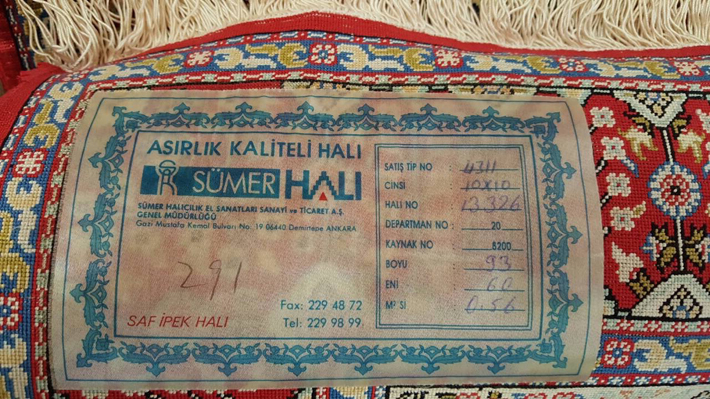 ASIRLIK KALİTELİ HALI
SÜMER HALI
SÜMER HALICILIK EL SANATLARI SANAYİ ve TİCARET A.Ş.
GENEL MÜDÜRLÜĞÜ
Gazi Mustafa Kemal Bulvarı No. 19 06440 Demirtepe ANKARA
291
SAF İPEK HALI
Fax: 229 48 72
Tel: 229 98 99
SATIŞ TİP NO : 4311
CİNSİ : 10X10
HALI NO : 13.326
DEPARTMAN NO : 20
KAYNAK NO : 8200
BOYU : 93
ENİ : 60
M² Sİ : 0.56